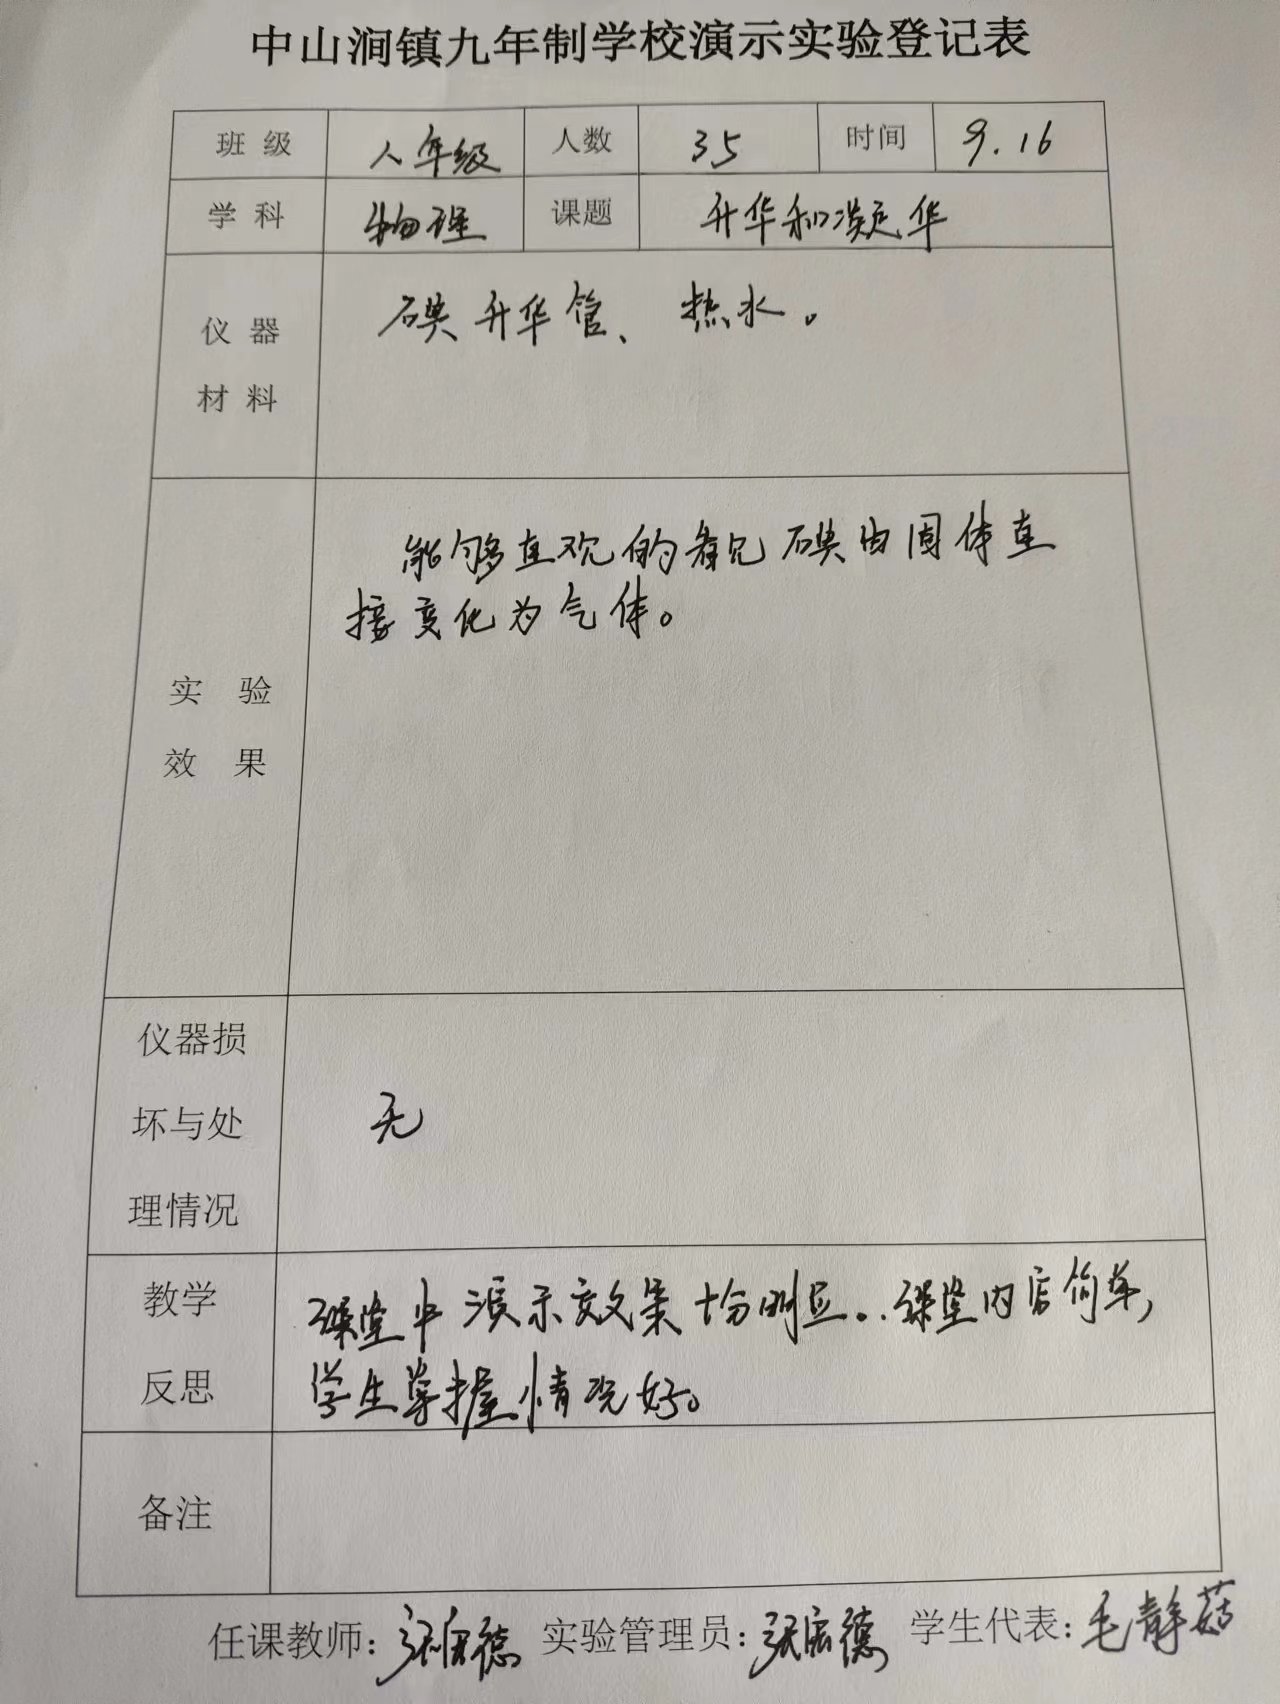 中山涧镇九年制学校演示实验登记表
班 级 八年级 人数 35 时间 9.16
学 科 物理 课题 升华和凝华
仪 器
材 料
碘升华管、热水。
实 验
效 果
能够直观的看见碘由固体直
接变化为气体。
仪器损
坏与处
理情况
无
教学
反思
课堂中演示效果十分明显。.课堂内容简单,
学生掌握情况好。
备注
任课教师: 张宏德 实验管理员: 张宏德 学生代表: 毛静茹